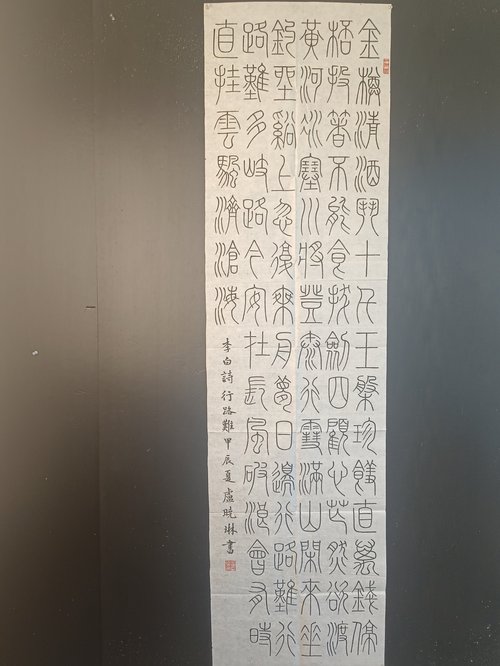 金樽清酒斗十千玉槃珍饈直萬錢停
桮投箸不能食拔劍四顧心茫然欲渡
黃河冰塞川將登太行雪滿山閑來垂
釣坐谿上忽復乘舟夢日邊行路難行
路難多岐路今安在長風破浪會有時
直挂雲帆濟滄海
李白詩行路難甲辰夏盧晓琳書